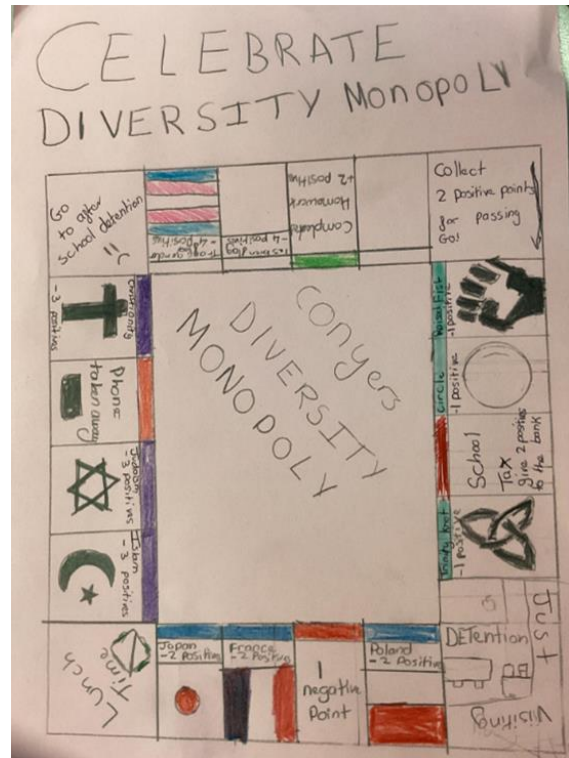 CELEBRATE
DIVERSITY MONOPOLY
Go
to after
School detention
Transgender
-4 positives
Lesbian flag
-4 positives
Complete
Homework
+2 positive
Collect
2 positive points
for passing
GO!
Christianity
-3 positives
Phone
taken away
Judaism
-3
positives
Islam
-3
positives
Conyers
DIVERSITY
MONOPOLY
Raised Fist
-1 positive
circle
-1 positive
School
Tax
give 2 positives
to the bank
Trinity knot
-1 positive
Lunch
Time
Japan
-2 Positive
France
-2 Positive
1
negative
Point
Poland
-2 Positive
JUST
DETENTION
Visiting